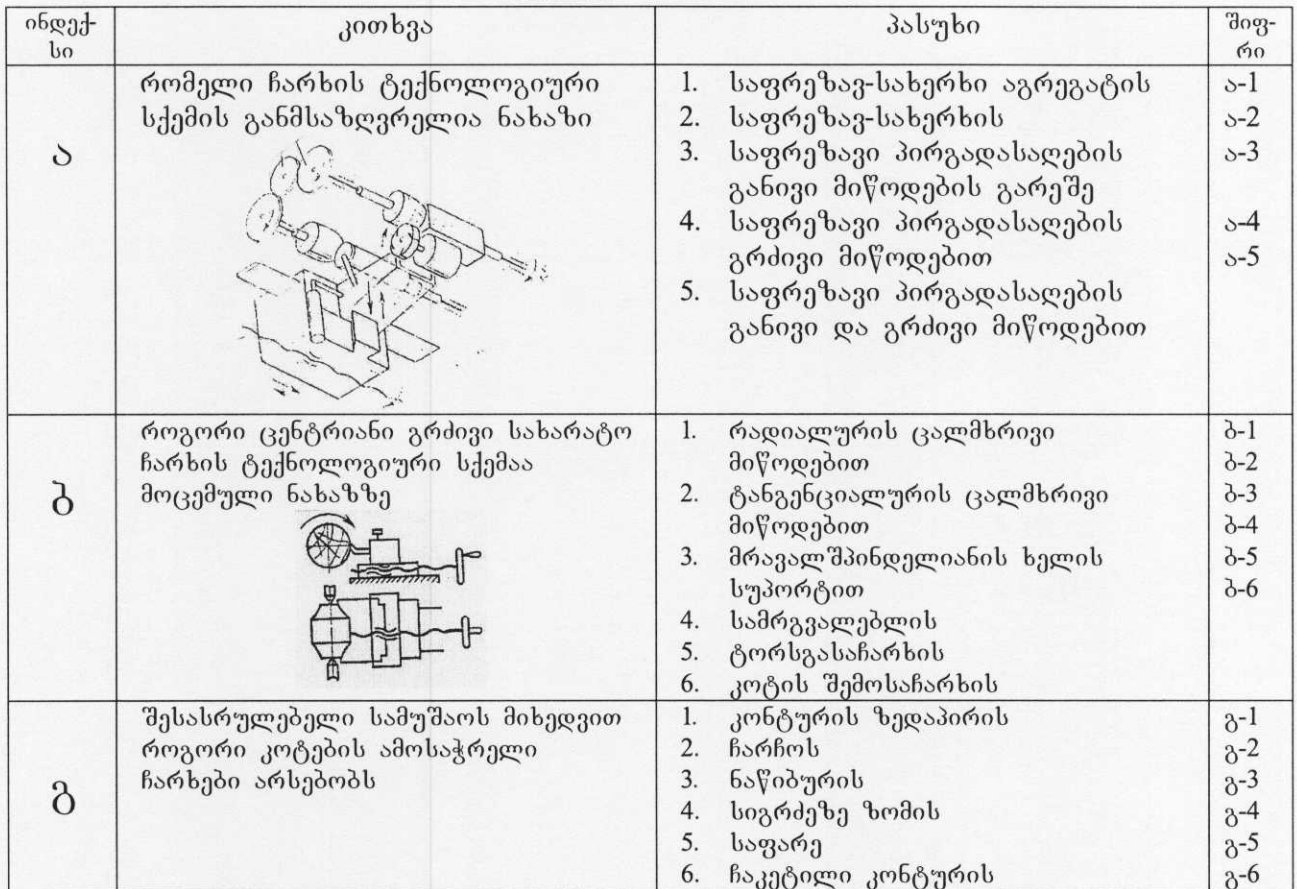 ინდექ-
სი
კითხვა
პასუხი
შიფ-
რი
ა
რომელი ჩარხის ტექნოლოგიური
სქემის განმსაზღვრელია ნახაზი
1. საფრეზავ-სახერხი აგრეგატის
2. საფრეზავ-სახერხის
3. საფრეზავი პირგადასაღების
განივი მიწოდების გარეშე
4. საფრეზავი პირგადასაღების
გრძივი მიწოდებით
5. საფრეზავი პირგადასაღების
განივი და გრძივი მიწოდებით
ა-1
ა-2
ა-3
ა-4
ა-5
ბ
როგორი ცენტრიანი გრძივი სახარატო
ჩარხის ტექნოლოგიური სქემაა
მოცემული ნახაზზე
1. რადიალურის ცალმხრივი
მიწოდებით
2. ტანგენციალურის ცალმხრივი
მიწოდებით
3. მრავალშპინდელიანის ხელის
სუპორტით
4. სამრგვალებლის
5. ტორსგასაჩარხის
6. კოტის შემოსაჩარხის
ბ-1
ბ-2
ბ-3
ბ-4
ბ-5
ბ-6
გ
შესასრულებელი სამუშაოს მიხედვით
როგორი კოტების ამოსაჭრელი
ჩარხები არსებობს
1. კონტურის ზედაპირის
2. ჩარჩოს
3. ნაწიბურის
4. სიგრძეზე ზომის
5. საფარე
6. ჩაკეტილი კონტურის
გ-1
გ-2
გ-3
გ-4
გ-5
გ-6